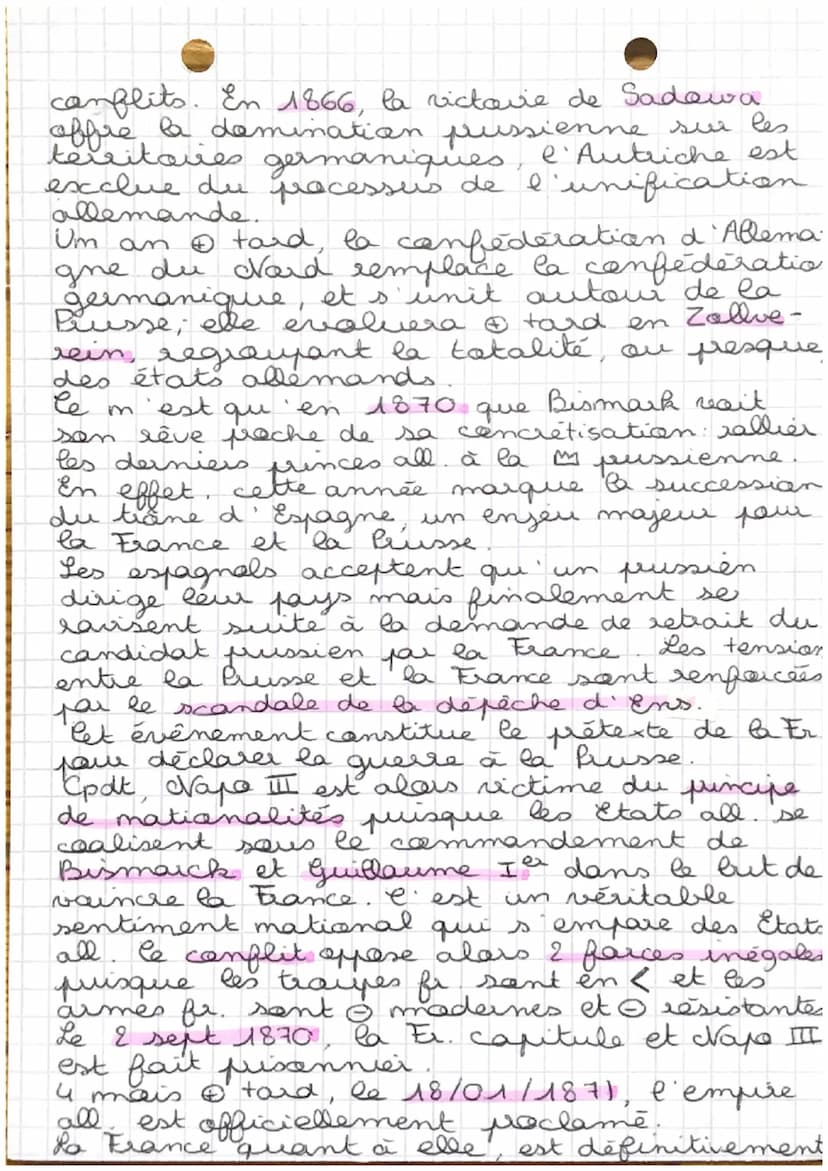 conflits. En 1866, la victoire de Sadowa
offre la domination prussienne sur les
territoires germaniques, l'Autriche est
exclue du processus de l'unification
allemande.
Un an ⊕ tard, la confédération d'Allema-
gne du Nord remplace la confédératio
germanique, et s'unit autour de la
Prusse; elle évoluera ⊕ tard en Zollve-
rein, regroupant la totalité, ou presque,
des états allemands.
Ce n'est qu'en 1870 que Bismark voit
son rêve proche de sa concrétisation: rallier
les derniers princes all. à la 👑 prussienne.
En effet, cette année marque la succession
du trône d'Espagne, un enjeu majeur pour
la France et la Prusse.
Les espagnols acceptent qu'un prussien
dirige leur pays mais finalement se
ravisent suite à la demande de retrait du
candidat prussien par la France. Les tension
entre la Prusse et la France sont renforcées
par le scandale de la dépêche d'Ems.
Cet évênement constitue le prétexte de la Fr
pour déclarer la guerre à la Prusse.
Cpdt, Napo III est alors victime du principe
de nationalités puisque les Etats all. se
coalisent sous le commandement de
Bismarck et Guillaume Ier dans le but de
vaincre la France. C'est un véritable
sentiment national qui s'empare des Etats
all. Ce conflit oppose alors 2 forces inégales
puisque les troupes fr. sont en < et les
armes fr. sont ⊖ modernes et ⊖ résistantes
Le 2 sept 1870, la Fr. capitule et Napo III
est fait prisonnier.
4 mois ⊕ tard, le 18/01/1871, l'empire
all. est officiellement proclamé.
La France quant à elle, est définitivement